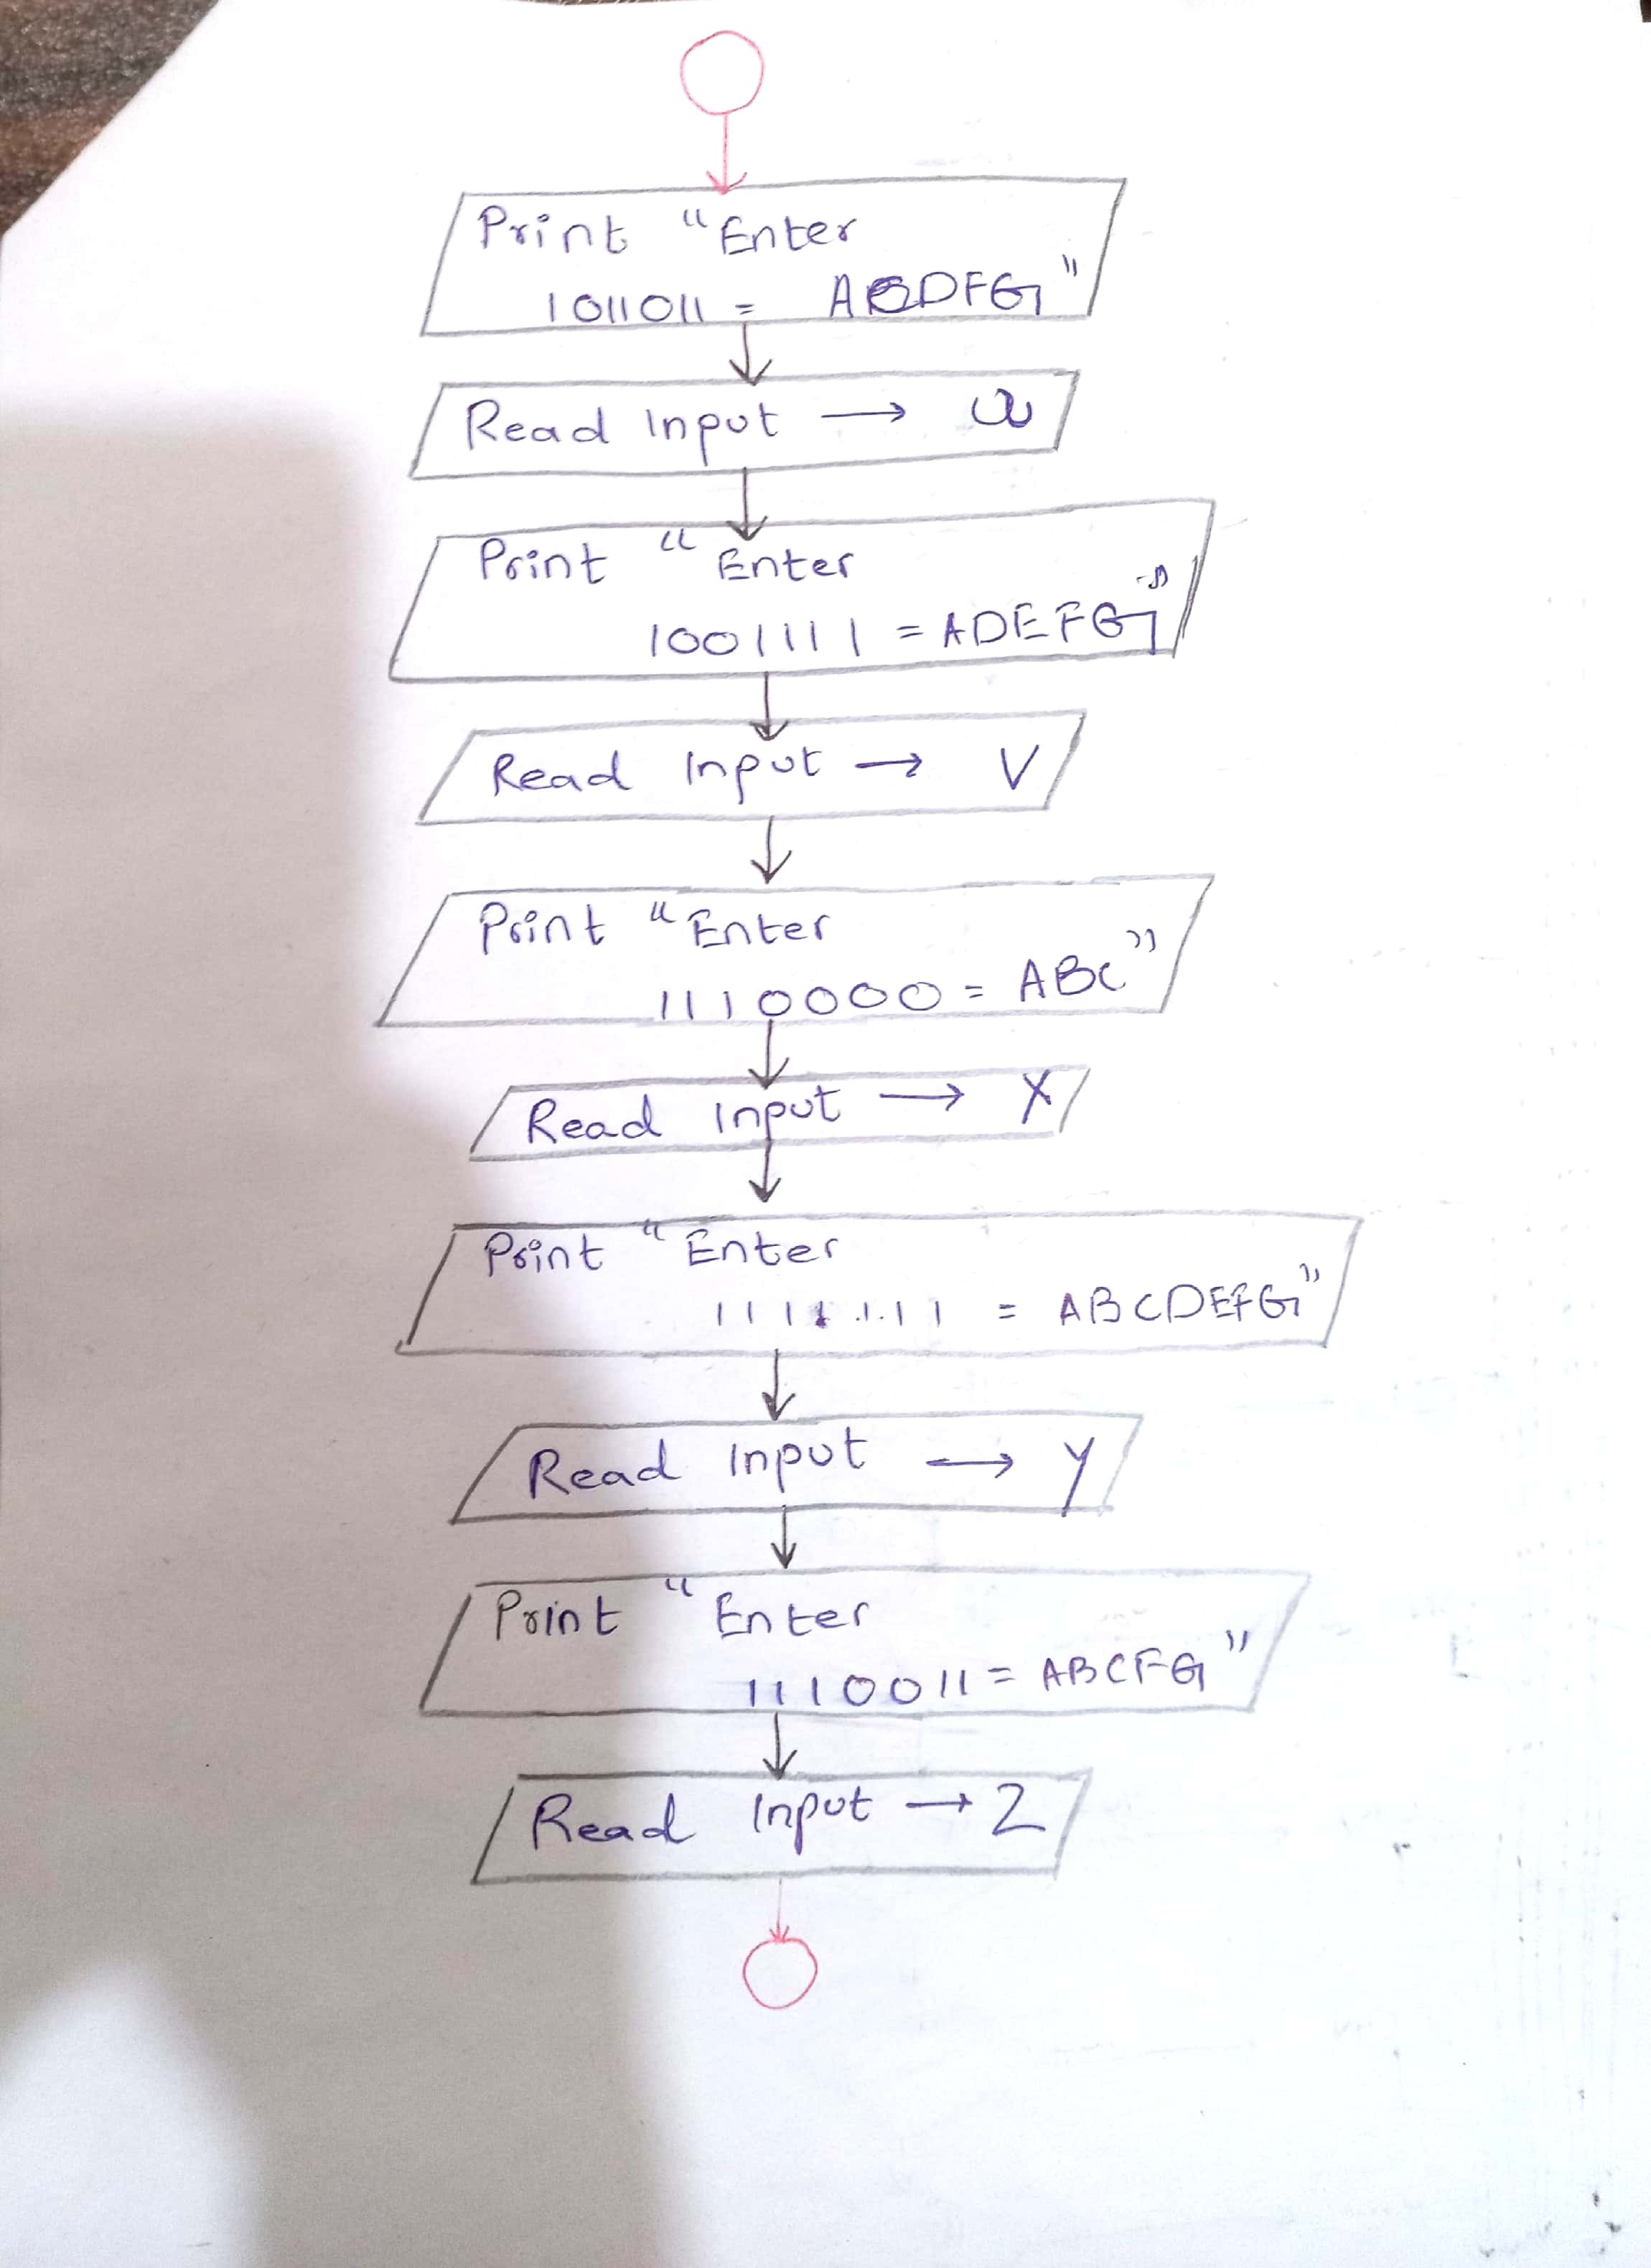 Print "Enter
1011011 = ACDFG"
Read Input →
Print "Enter
1001111 = ADEFG"
Read Input → V
Print "Enter
1110000 = ABC"
Read Input → X
Print "Enter
1111111 = ABCDEFG"
Read Input → Y
Print "Enter
1110011 = ABCFG"
Read Input → Z